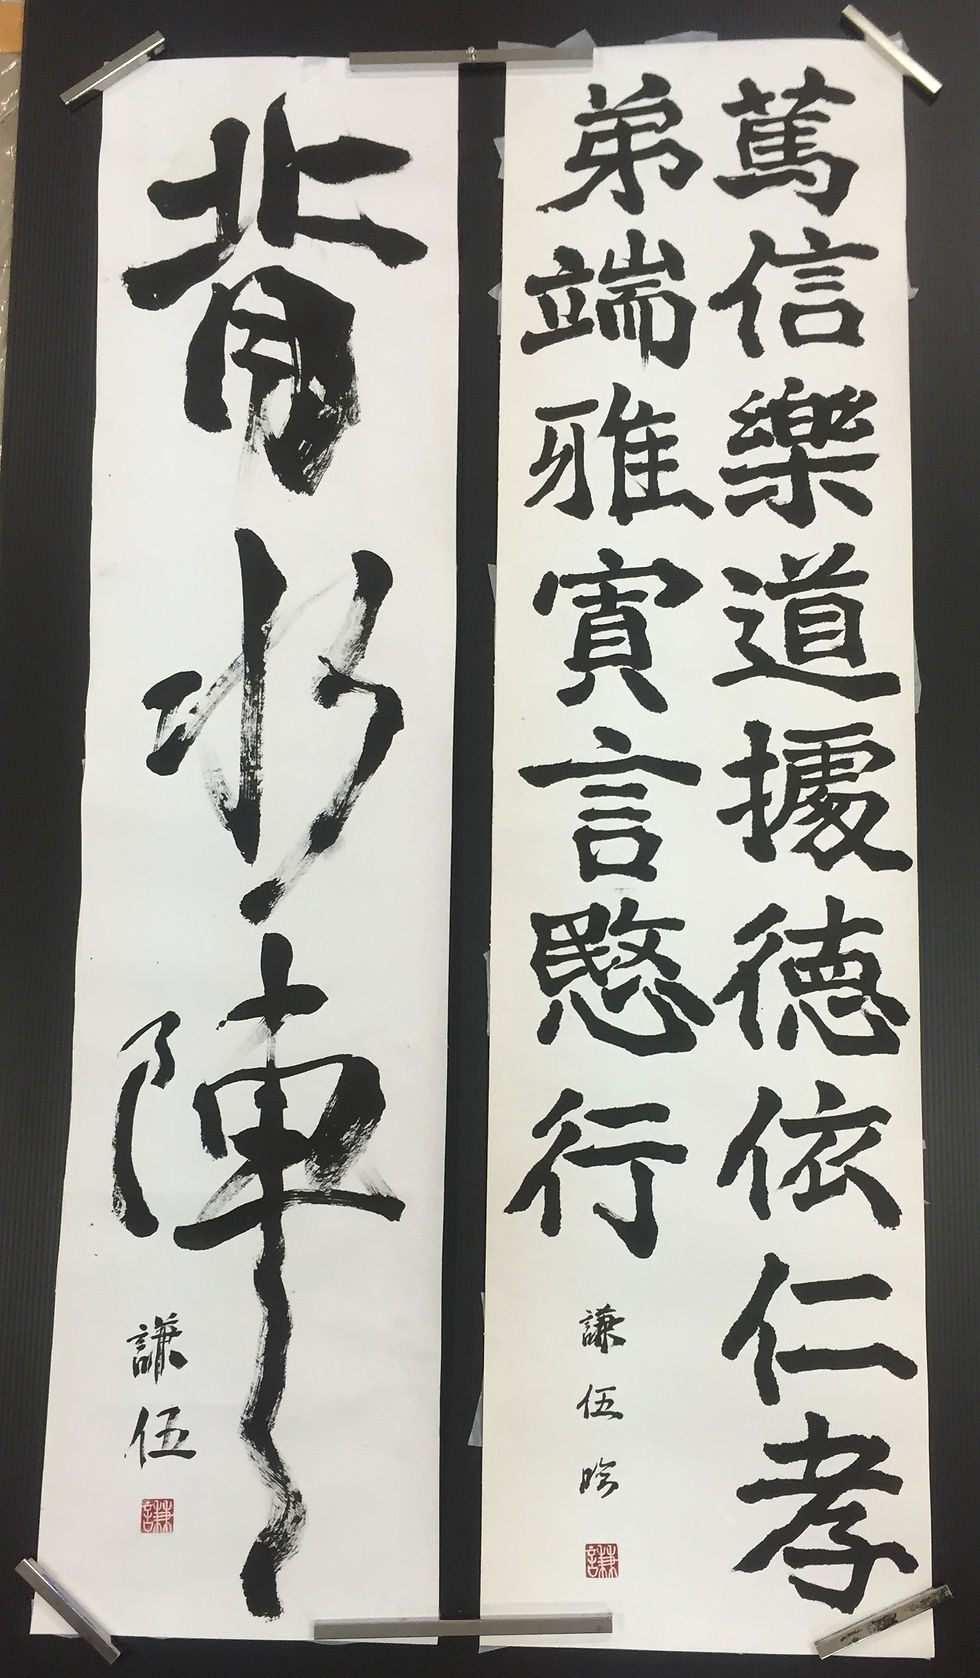 篤信樂道據德依仁孝
弟端雅賓言愍行
謙伍臨
謙
背水陣
謙伍
謙